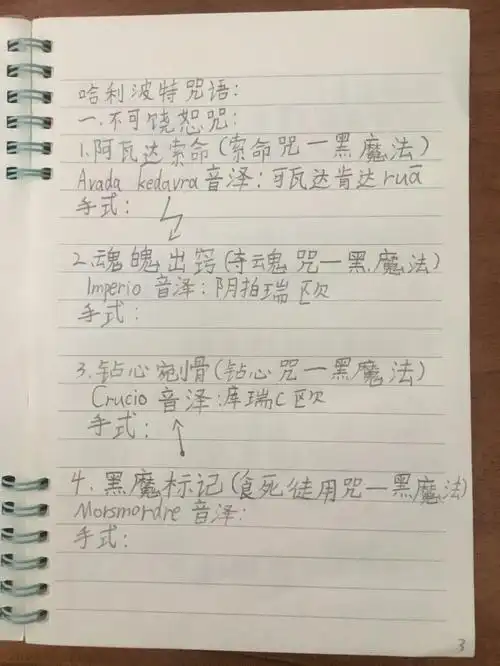 哈利波特咒语:
一.不可饶恕咒:
1.阿瓦达索命(索命咒—黑魔法)
Avada kedavra音泽:阿瓦达肯达ruā
手式:
2.魂魄出窍(夺魂咒—黑魔法)
Imperio 音泽:阴拍瑞欧
手式:
3.钻心剜骨(钻心咒—黑魔法)
Crucio 音泽:库瑞C欧
手式:
4.黑魔标记(食死徒用咒—黑魔法)
Morsmordre 音泽:
手式:
3